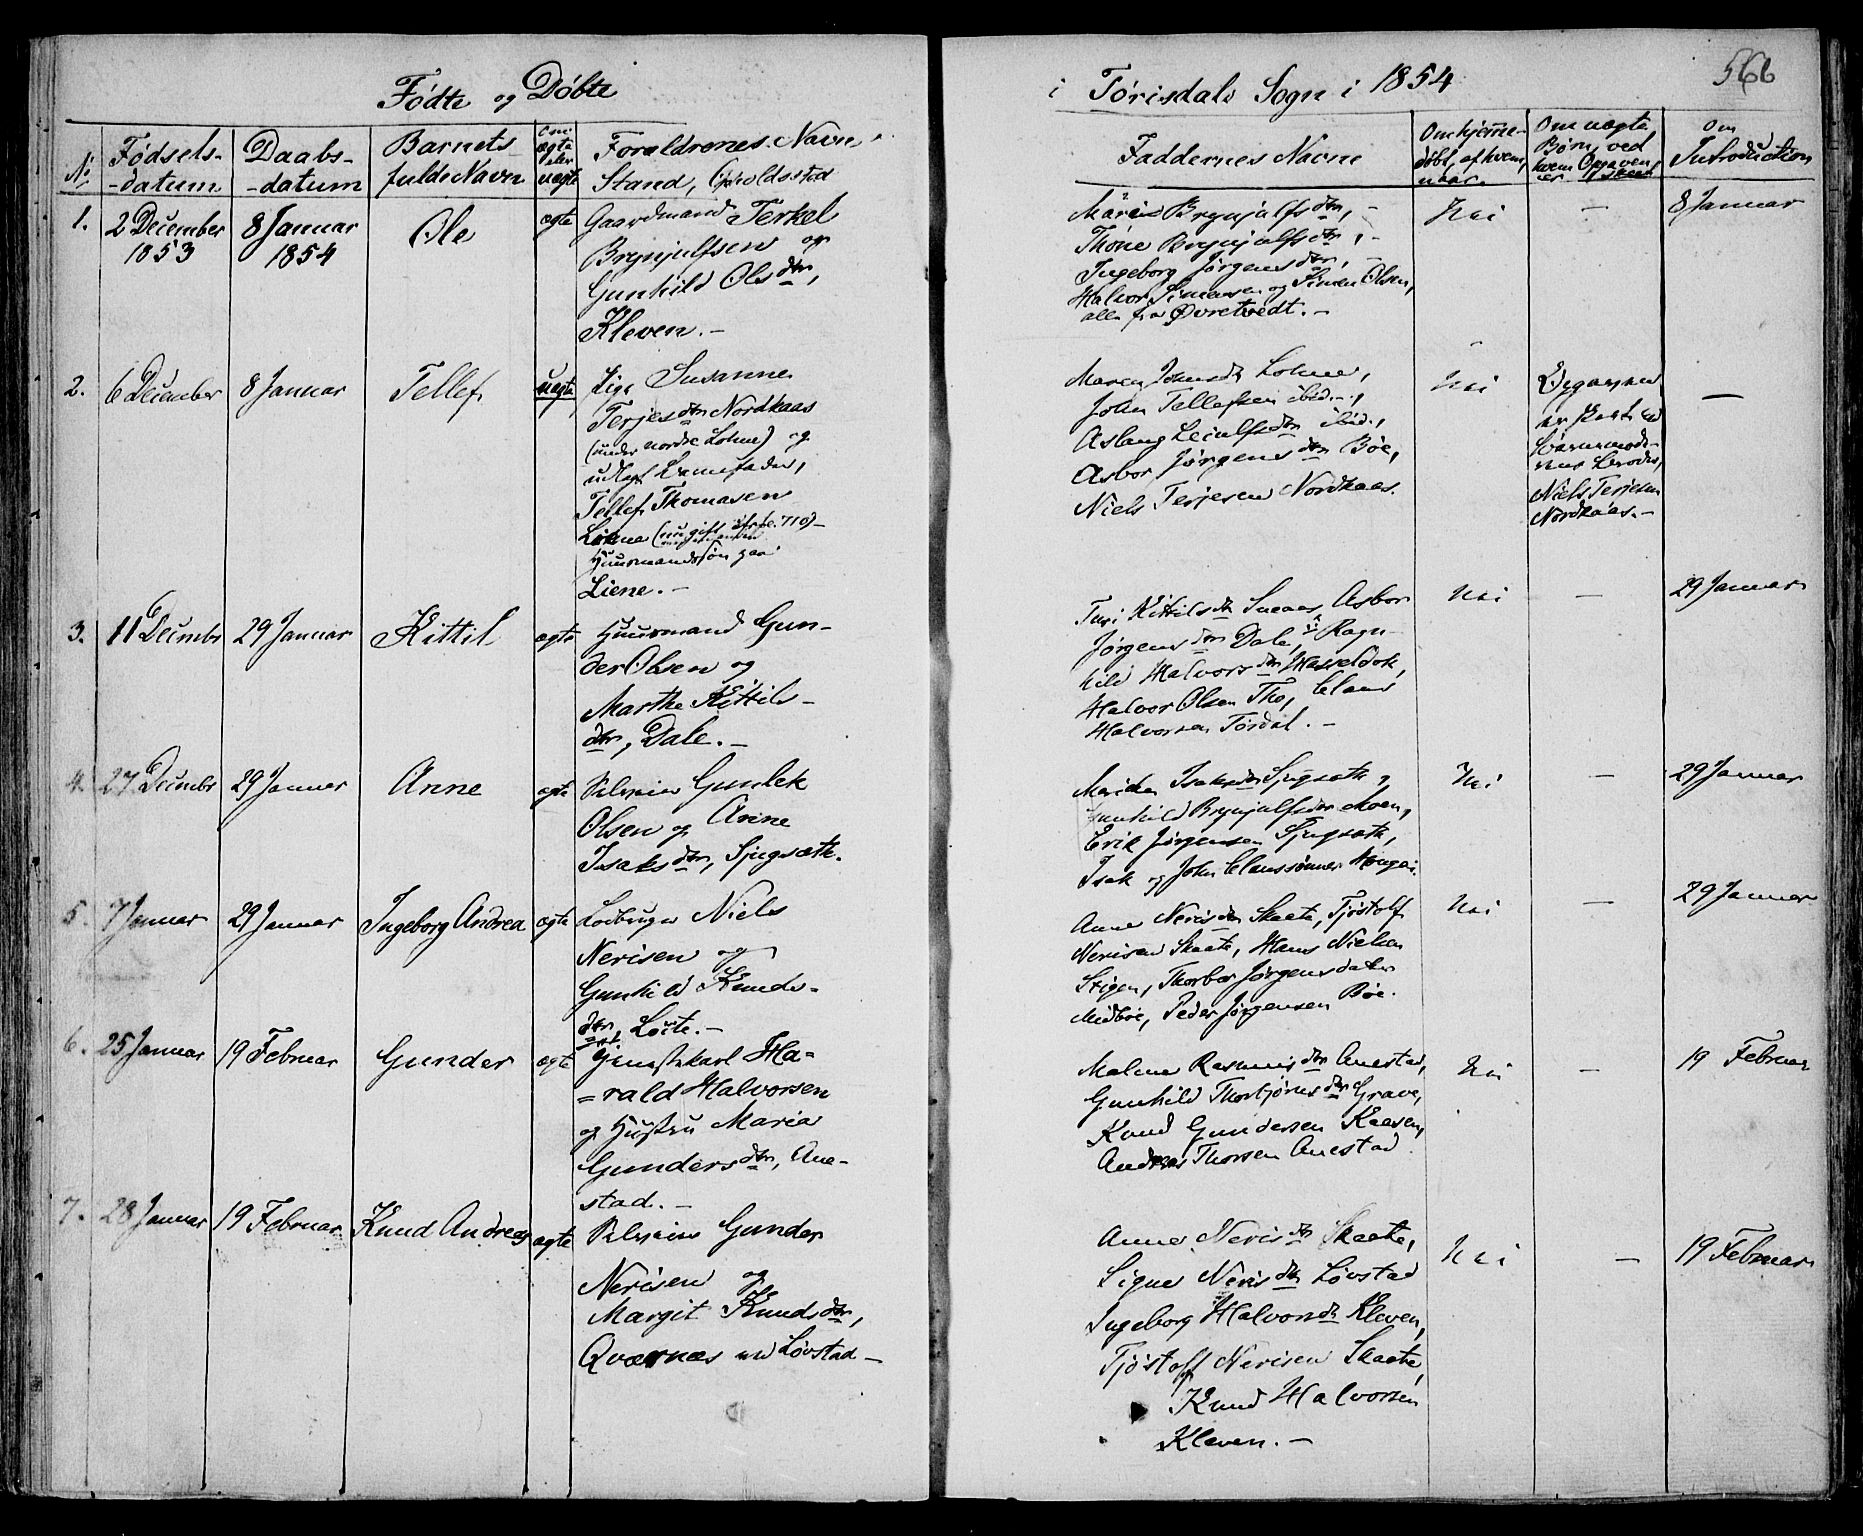 Fødte og Døbte
i Tørisdals Sogn i 1854
566
No
Fødsels-
-datum
Daabs-
-datum
Barnets
fulde Navn
om
ægte
eller
uægte
Forældrenes Navn
Stand, Opholdssted
Faddernes Navne
Om hjemme-
døbt, af hvem,
naar.
Om uægte
Børn, ved
hvem Opgaven
er skeet
om
Introduction
1.
2 December
1853
8 Januar
1854
Ole
ægte
Gaardmand Terkel
Brynjulfsen og
Gunhild Olsdtr,
Kleven.-
Maren Brynjulfsdtr,-
Thone Brynjulfsdtr,-
Ingeborg Jørgensdtr,-
Halvor Simensen og Simen Olsen,
alle fra Øvretvedt.-
Nei
-
8 Januar
2.
6 December
8 Januar
Tellef
uægte
Pige Susanne
Terjesdtr Nordkaas
(under nordre Lohne) og
udlagt Barnefader,
Tellef Thomasen
Lohne
Huusmandssøn paa
Liene.-
Maren Johnsdtr Lohne,
John Tellefsen ibid.,
Aslaug Leiulfsdtr ibid.,
Asbor Jørgensdtr Bøe,
Niels Terjesen Nordkaas.
Nei
Opgaven
er skeet ved
Barnemode-
rens Broder,
Niels Terjesen
Nordkaas.-
-
3.
11 Decembr
29 Januar
Kittil
ægte
Huusmand Gun-
der Olsen og
Marthe Kittils-
dtr, Dale.-
Turi Kittilsdtr Sneaas, Asbor
Jørgensdtr Dale, Ragn-
hild Halvorsdtr
Halvor Olsen Tho, Claus
Halvorsen Tørdal.-
Nei
-
29 Januar
4.
27 Decembr
29 Januar
Anne
ægte
Selveier Gunlek
Olsen og Anne
Isaksdtr, Sjugsæth.
Maren Isaksdtr Sjugsæth,
Gunhild Brynjulfsdtr Moen,
Erik Jørgensen Sjugsæth,
Isak og John Claussønner
Nei
-
29 Januar
5.
7 Januar
29 Januar
Ingeborg Andrea
ægte
Lodbruger Niels
Nerisen og
Gunhild Knuds-
dtr,
Anne Nerisdtr Skaate, Tjøstolf
Nerisen Skaate, Hans Nielsen
Stigen, Thorbor Jørgensdatter
Midbøe, Peder Jørgensen Bøe.
Nei
-
29 Januar
6.
25 Januar
19 Februar
Gunder
ægte
Tjenestekarl Ha-
=rald Halvorsen
og Hustru Maria
Gundersdtr, Ane-
stad.-
Malene Rasmusdtr Anestad,
Gunhild Thorbjørnsdtr Grave,
Knud Gundersen Kaasen,
Andreas Thorsen Anestad
Nei
-
19 Februar
7.
28 Januar
19 Februar
Knud Andreas
ægte
Selveier Gunder
Nerisen og
Margit Knudsdtr,
Qværnæs ved Løvstad-
Anne Nerisdtr Skaate,
Signe Nerisdtr Løvstad
Ingeborg Halvorsdtr Kleven,
Tjøstolf Nerisen Skaate,
Knud Halvorsen
Kleven.-
Nei
-
19 Februar